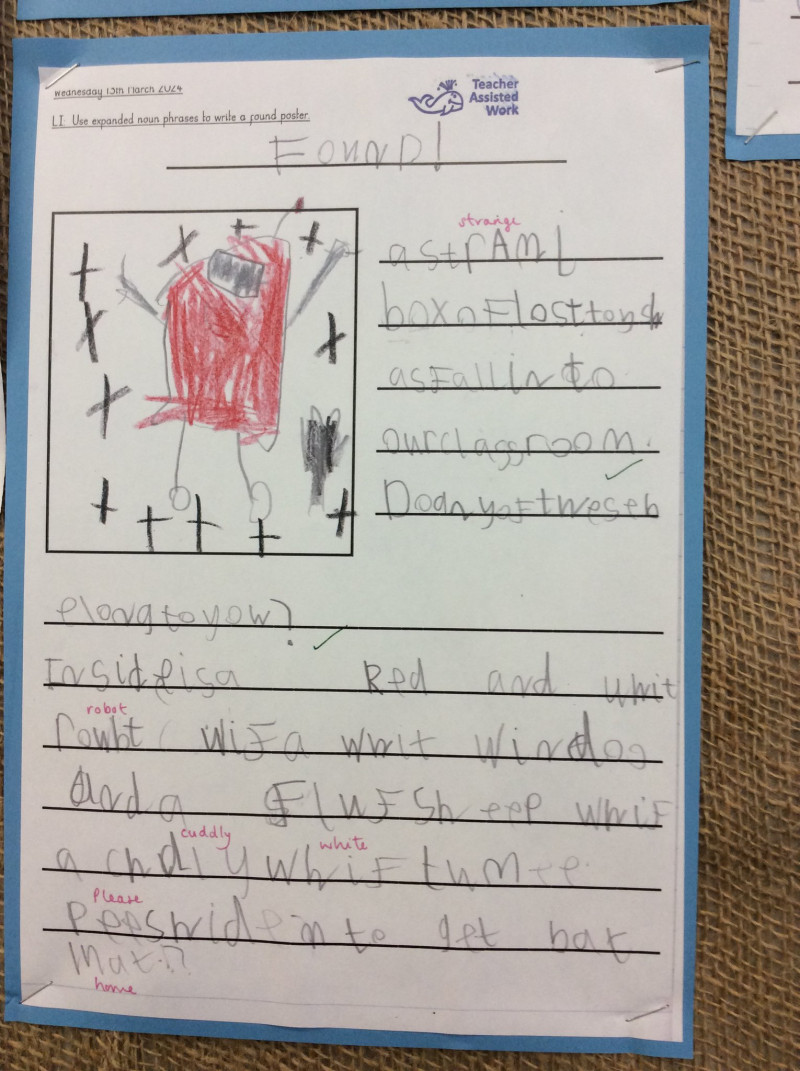 Wednesday 13th March 2024
Teacher
Assisted
Work
L.I: Use expanded noun phrases to write a found poster.
Found!
strange
a strAnj
box oF lost toysh
as Fall into
our classroom.
Do any oF theseb
elong to yow?
Inside is a Red and whit
robot
roubt wiF a whit windoo
And a FluFSheep whiF
cuddly white
a chdly whiF tumee.
Please
Peeshide in to get bak
mat.??
home